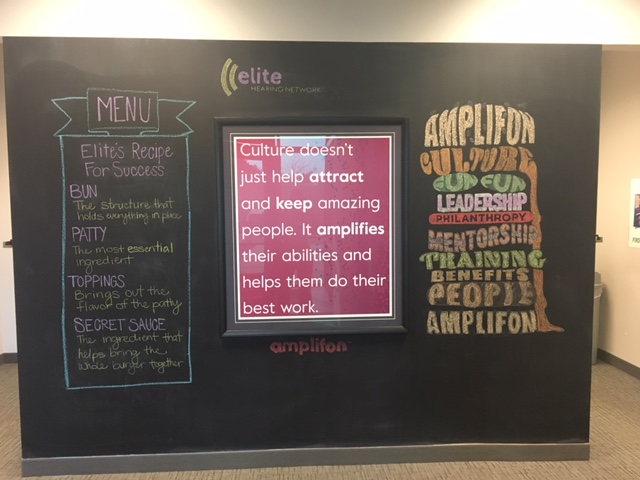 MENU
Elite's Recipe
For Success
BUN
The structure that
holds everything in place
PATTY
The most essential
ingredient
TOPPINGS
Brings out the
flavor of the patty
SECRET SAUCE
The ingredient that
helps bring the
whole burger together
elite
HEARING NETWORK
Culture doesn't
just help attract
and keep amazing
people. It amplifies
their abilities and
helps them do their
best work.
amplifon
AMPLIFON
CULTURE
FUN FUN
LEADERSHIP
PHILANTHROPY
MENTORSHIP
TRAINING
BENEFITS
PEOPLE
AMPLIFON